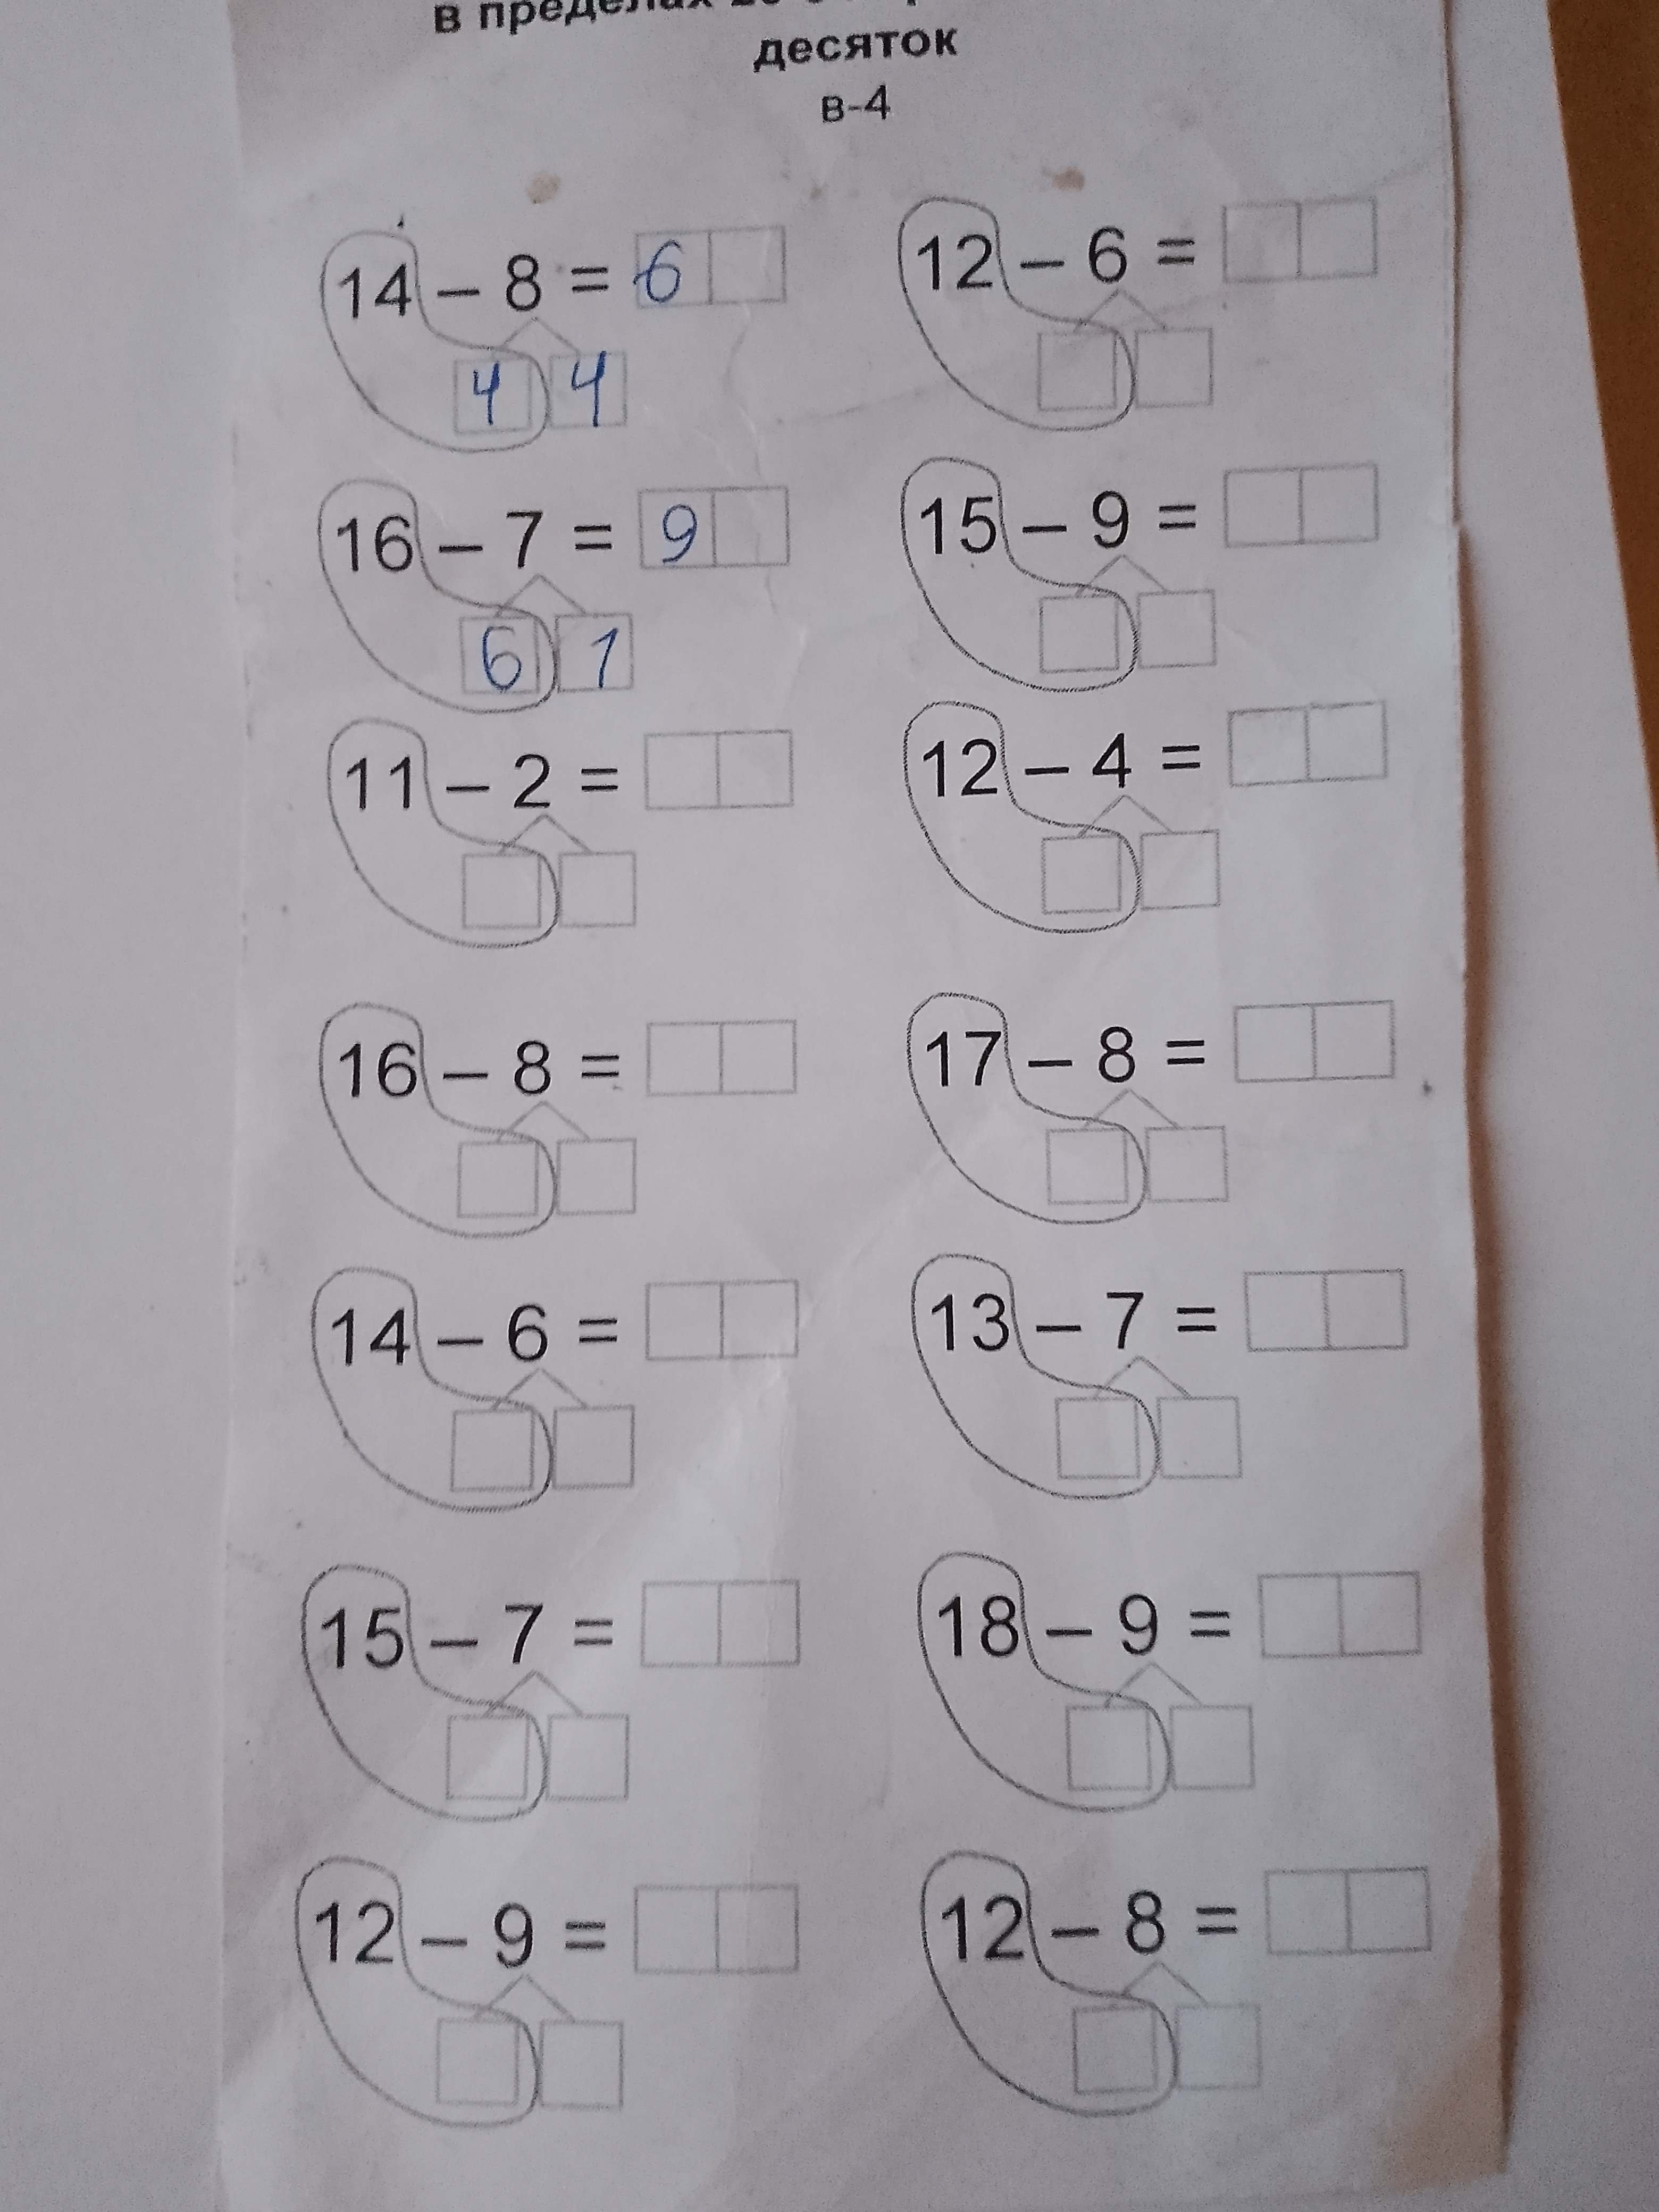 в пределах
десяток
в-4
14 – 8 = 6 12 – 6 =
4 4
16 – 7 = 9 15 – 9 =
6 1
11 – 2 = 12 – 4 =
16 – 8 = 17 – 8 =
14 – 6 = 13 – 7 =
15 – 7 = 18 – 9 =
12 – 9 = 12 – 8 =